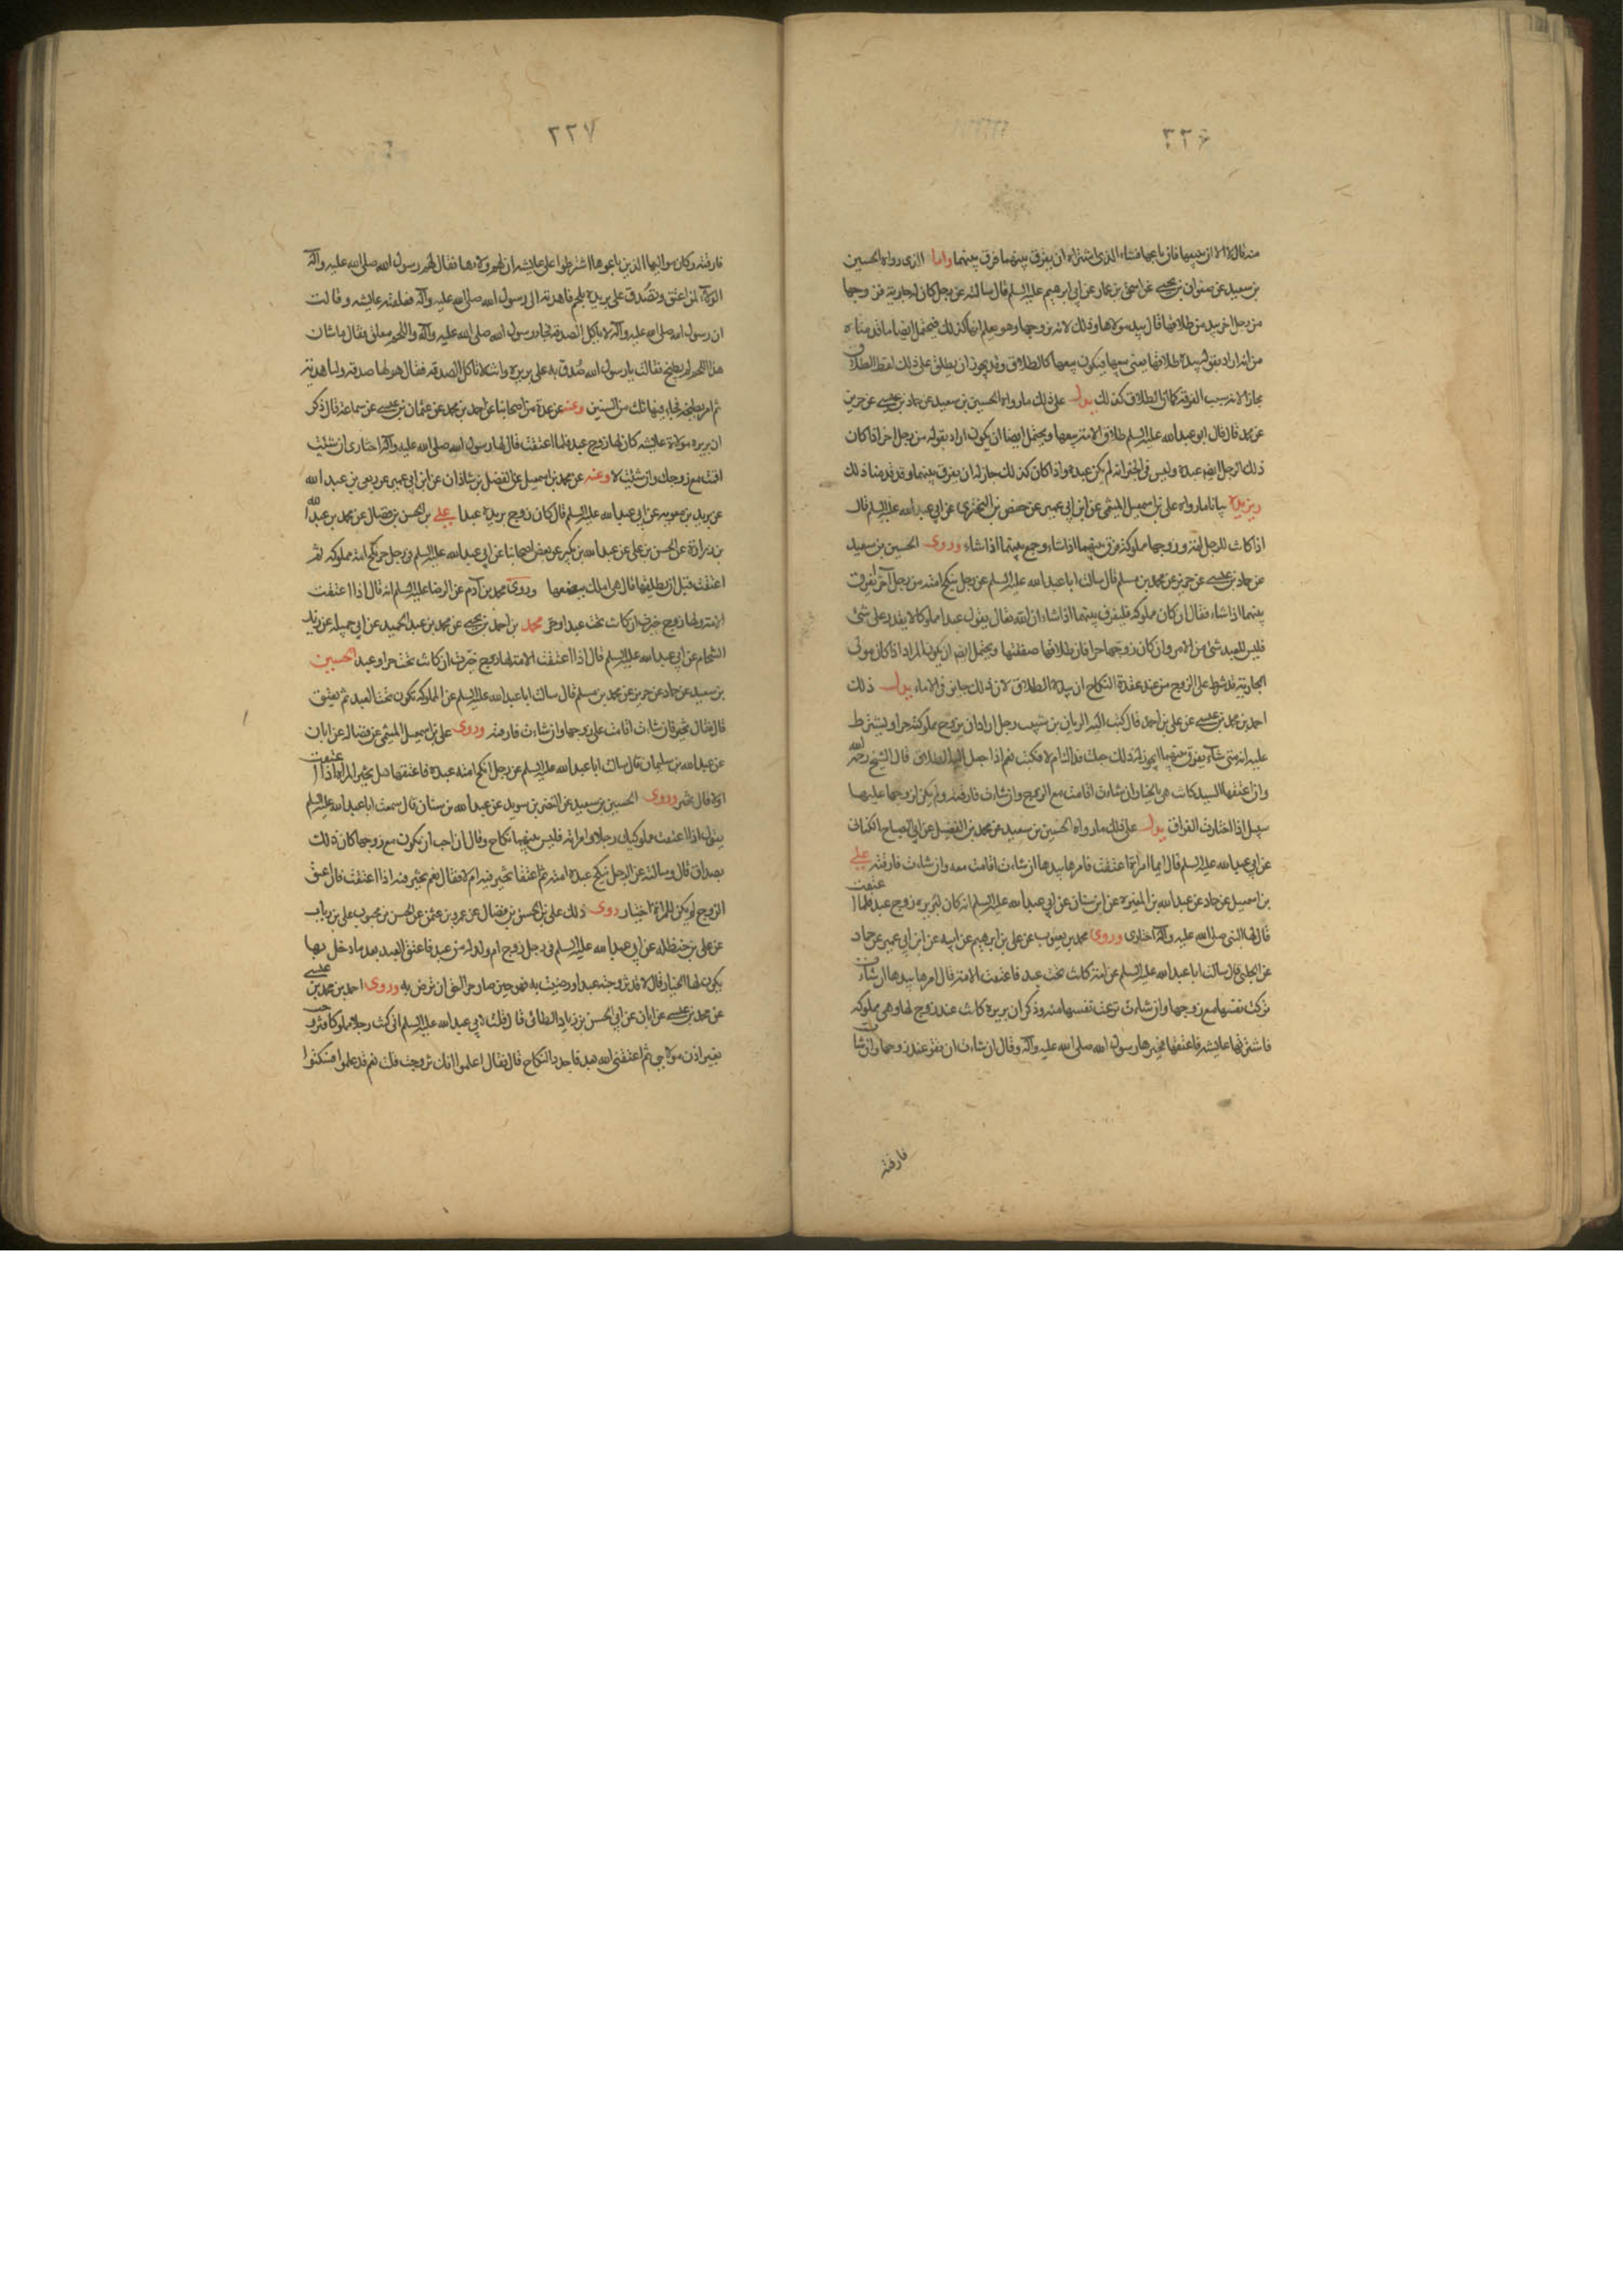 ٢٢۶
منه قال لا الا ان يبيعها فان باعها فشاء الذي اشتراه ان يفرق بينهما فرق بينهما واما الذي رواه الحسين
بن سعيد عن صفوان بن يحيى عن اسحق بن عمار عن ابي ابرهيم عليه السلم قال سالته عن رجل كان له جارية فزوجها
من رجل اخر بيد من طلاقها قال بيد مولاها وذلك لانه تزوجها وهو يعلم انها كذلك فيحتمل ايضا ما قدمناه
من انه اراد بقوله بيده طلاقها يعني بيعها فيكون بيعها كالطلاق وقد يجوز ان يطلق على ذلك لفظ الطلاق
مجازا لانه سبب الفرقة كما ان الطلاق كذلك يدل على ذلك ما رواه الحسين بن سعيد عن حماد بن عيسى عن حريز
عن محمد قال قال ابو عبد الله عليه السلم طلاق الامة بيعها ويحتمل ايضا ان يكون اراد بقوله من رجل اخر اذا كان
ذلك الرجل ايضا عبده وليس في الخبر انه لم يكن عبده واذا كان كذلك جاز له ان يفرق بينهما وقد قدمنا ذلك
ويزيده بيانا ما رواه علي بن اسمعيل الميثمي عن ابن ابي عمير عن حفص بن البختري عن ابي عبد الله عليه السلم قال
اذا كانت للرجل امة وزوجها مملوكه فرق بينهما اذا شاء وجمع بينهما اذا شاء وروى الحسين بن سعيد
عن حماد بن عيسى عن حريز عن محمد بن مسلم قال سالت ابا عبد الله عليه السلم عن رجل ينكح امته من رجل آخر يفرق
بينهما اذا شاء فقال ان كان مملوكه فليفرق بينهما اذا شاء ان الله تعالى يقول عبدا مملوكا لا يقدر على شئ
فليس للعبد شئ من الامر وان كان زوجها حرا فان طلاقها صفقتها ويحتمل ايضا ان يكون المراد اذا كان مولى
الجارية قد شرط على الزوج من عند عقدة النكاح ان بيده الطلاق لان ذلك جايز في الاماء يدل ذلك
احمد بن محمد بن عيسى عن علي بن احمد قال كتب اليه الريان بن شبيب رجل اراد ان يزوج مملوكته حرا ويشترط
عليه انه متى شاء يفرق بينهما ايجوز له ذلك جعلت فداك ام لا فكتب نعم اذا جعل اليه الطلاق قال الشيخ رحمه الله
وان اعتقها السيد كانت هي بالخيار ان شاءت اقامت مع الزوج وان شاءت فارقته ولم يكن لزوجها عليها
سبيل اذا اختارت الفراق يدل على ذلك ما رواه الحسين بن سعيد عن محمد بن الفضيل عن ابي الصباح الكناني
عن ابي عبد الله عليه السلم قال ايما امراة اعتقت فامرها بيدها ان شاءت اقامت معه وان شاءت فارقته علي
بن اسمعيل عن حماد عن عبد الله بن المغيرة عن ابن سنان عن ابي عبد الله عليه السلم انه كان لبريره زوج عبد فلما اعتقت
قال لها النبي صلى الله عليه وآله اختاري وروى محمد بن يعقوب عن علي بن ابرهيم عن ابيه عن ابن ابي عمير عن حماد
عن الحلبي قال سالت ابا عبد الله عليه السلم عن امة كانت تحت عبد فاعتقت الامة قال امرها بيدها ان شاءت
تركت نفسها مع زوجها وان شاءت نزعت نفسها منه وذكر ان بريره كانت عند زوج لها وهي مملوكه
فاشترتها عايشه فاعتقتها فخيرها رسول الله صلى الله عليه وآله وقال ان شاءت ان تقر عند زوجها وان شاءت
فارقته
٢٢٧
فارقته وكان مواليها الذين باعوها اشترطوا على عايشه ان لهم ولاءها فقال لهم رسول الله صلى الله عليه وآله
الولاء لمن اعتق وتصدق على بريره بلحم فاهدته الى رسول الله صلى الله عليه وآله فعلقته عايشه وقالت
ان رسول الله صلى الله عليه وآله لا ياكل الصدقه فجاء رسول الله صلى الله عليه وآله واللحم معلق فقال ما شان
هذا اللحم لم يطبخ فقالت يا رسول الله صدق به على بريره وانت لا تاكل الصدقه فقال هو لها صدقه ولنا هدية
ثم امر بطبخه فجاء فيها ثلث من السنين وعنه عن عدة من اصحابنا عن احمد بن محمد عن عثمان بن عيسى عن سماعة قال ذكر
ان بريره مولاة عايشه كان لها زوج عبد فلما اعتقت قال لها رسول الله صلى الله عليه وآله اختاري ان شئت
اقمت مع زوجك وان شئت لا وعنه عن محمد بن اسمعيل عن الفضل بن شاذان عن ابن ابي عمير عن ربعي بن عبد الله
عن بريد بن معويه عن ابي عبد الله عليه السلم قال كان زوج بريره عبدا علي بن الحسن بن فضال عن محمد بن عبد الله
بن زرارة عن الحسن بن علي عن عبد الله بن بكير عن بعض اصحابنا عن ابي عبد الله عليه السلم في رجل حر نكح امة مملوكه ثم
اعتقت قبل ان يطلقها قال هي املك ببضعها وروى محمد بن آدم عن الرضا عليه السلم انه قال اذا اعتقت
الامة ولها زوج خيرت ان كانت تحت عبد او حر محمد بن احمد بن يحيى عن محمد بن عبد الحميد عن ابي جميله عن زيد
الشحام عن ابي عبد الله عليه السلم قال اذا اعتقت الامة ولها زوج خيرت ان كانت تحت حر او عبد الحسين
بن سعيد عن حماد عن حريز عن محمد بن مسلم قال سالت ابا عبد الله عليه السلم عن المملوكه تكون تحت العبد ثم تعتق
قال فقال تخير فان شاءت اقامت على زوجها وان شاءت فارقته وروى علي بن اسمعيل الميثمي عن فضاله عن ابان
عن عبد الله بن سليمان قال سالت ابا عبد الله عليه السلم عن رجل انكح امته عبده فاعتقها هل تخير المراة اذا اعتقت
او لا قال تخير وروى الحسين بن سعيد عن النضر بن سويد عن عبد الله بن سنان قال سمعت ابا عبد الله عليه السلم
يقول اذا اعتقت مملوكيك رجلا وامراته فليس بينهما نكاح وقال ان احبت ان تكون مع زوجها كان ذلك
بصداق قال وسالته عن الرجل ينكح عبده امته ثم اعتقها تخير فيه ام لا فقال نعم تخير فيه اذا اعتقت فان عتق
الزوج لم يكن للمراة اختيار روى ذلك علي بن الحسن بن فضال عن عمرو بن عثمن عن الحسن بن محبوب علي بن رياب
عن علي بن حنظله عن ابي عبد الله عليه السلم في رجل زوج ام ولد له من عبد فاعتق العبد بعد ما دخل بها
يكون لها الخيار قال لا قد تزوجته عبدا ورضيت به فهو حين صار حرا احق ان ترضى به وروى احمد بن محمد بن عيسى
عن محمد بن عيسى عن ابان عن ابي الحسن بن زياد الطائي قال قلت لابي عبد الله عليه السلم اني كنت رجلا مملوكا فتزوجت
بغير اذن مولاي ثم اعتقني الله بعد فاجدد النكاح قال فقال اعلموا انك تزوجت قلت نعم قد علموا فسكتوا